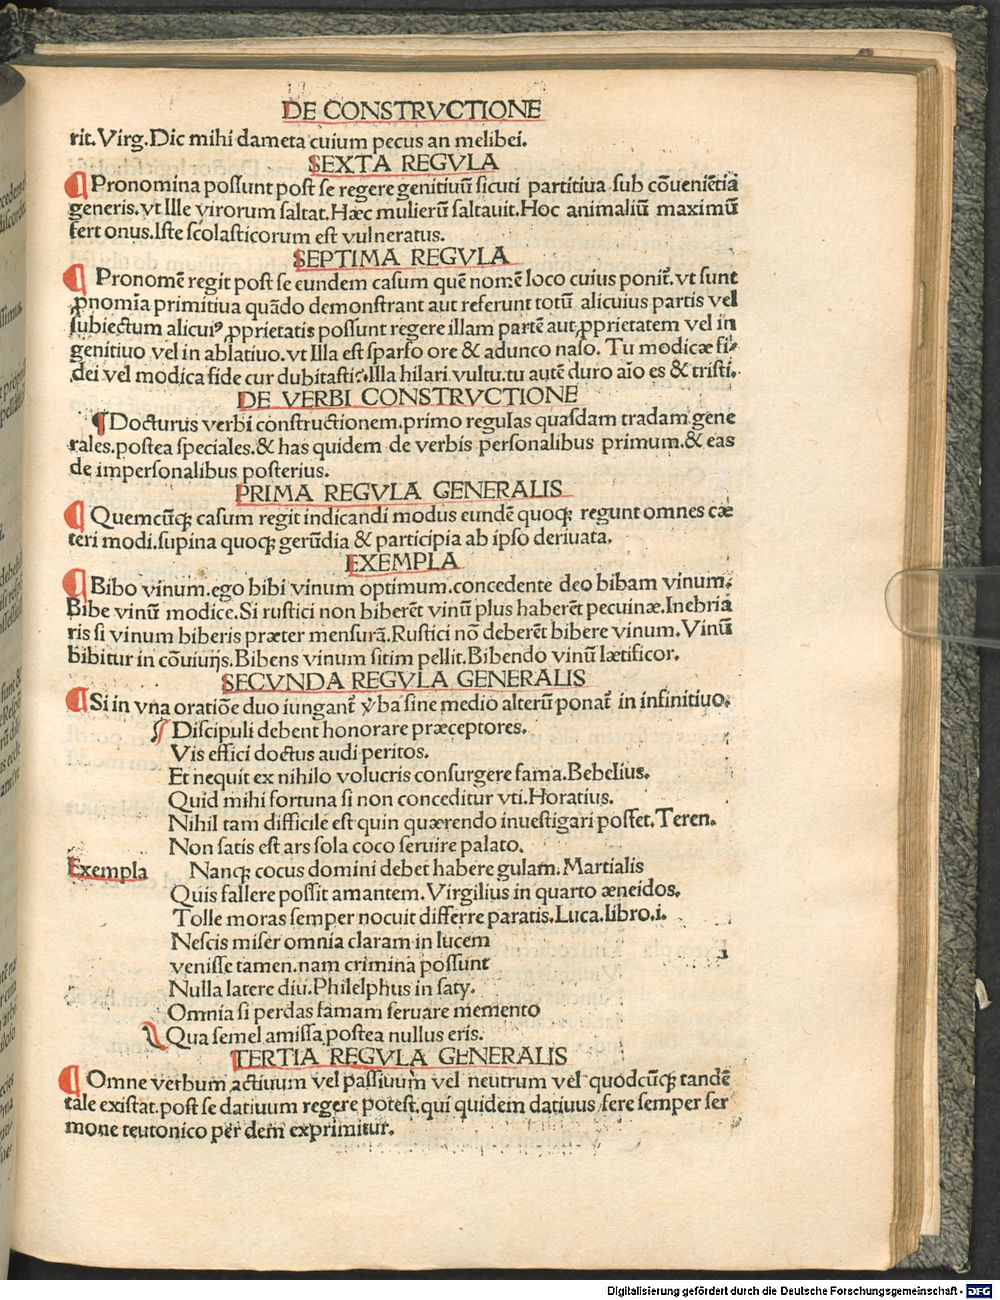 DE CONSTRVCTIONE
rit. Virg. Dic mihi dameta cuium pecus an melibei.
SEXTA REGVLA
¶ Pronomina possunt post se regere genitiuū sicuti partitiua sub cōueniētia
generis. vt Ille virorum saltat. Hæc mulierū saltauit. Hoc animaliū maximū
fert onus. Iste scolasticorum est vulneratus.
SEPTIMA REGVLA
¶ Pronomē regit post se eundem casum quē nomē loco cuius ponit᷑. vt sunt
ꝓnomīa primitiua quādo demonstrant aut referunt totū alicuius partis vel
subiectum alicuiꝰ ꝓprietatis possunt regere illam partē aut ꝓprietatem vel in
genitiuo vel in ablatiuo. vt Illa est sparso ore & adunco naso. Tu modicæ fi⸗
dei vel modica fide cur dubitasti? Illa hilari vultu. tu autē duro aīo es & tristi.
DE VERBI CONSTRVCTIONE
¶ Docturus verbi constructionem. primo regulas quasdam tradam gene
rales. postea speciales. & has quidem de verbis personalibus primum. & eas
de impersonalibus posterius.
PRIMA REGVLA GENERALIS
¶ Quemcūqꝫ casum regit indicandi modus eundē quoqꝫ regunt omnes cæ
teri modi. supina quoqꝫ gerūdia & participia ab ipso deriuata.
EXEMPLA
¶ Bibo vinum. ego bibi vinum optimum. concedente deo bibam vinum.
Bibe vinū modice. Si rustici non biberēt vinū plus haberēt pecuinæ. Inebria
ris si vinum biberis præter mensurā. Rustici nō deberēt bibere vinum. Vinū
bibitur in cōuiuijs. Bibens vinum sitim pellit. Bibendo vinū lætificor.
SECVNDA REGVLA GENERALIS
¶ Si in vna oratiōe duo iungant᷑ v̓ba sine medio alterū ponat᷑ in infinitiuo.
Discipuli debent honorare præceptores.
Vis effici doctus audi peritos.
Et nequit ex nihilo volucris consurgere fama. Bebelius.
Quid mihi fortuna si non conceditur vti. Horatius.
Nihil tam difficile est quin quærendo inuestigari posset. Teren.
Non satis est ars sola coco seruire palato.
Exempla Nanqꝫ cocus domini debet habere gulam. Martialis
Quis fallere possit amantem. Virgilius in quarto æneidos.
Tolle moras semper nocuit differre paratis. Luca. libro. i.
Nescis miser omnia claram in lucem
venisse tamen. nam crimina possunt
Nulla latere diu. Philelphus in saty.
Omnia si perdas famam seruare memento
Qua semel amissa postea nullus eris.
TERTIA REGVLA GENERALIS
¶ Omne verbum actiuum vel passiuum vel neutrum vel quodcūqꝫ tandē
tale existat. post se datiuum regere potest. qui quidem datiuus fere semper ser
mone teutonico per dem exprimitur.
Digitalisierung gefördert durch die Deutsche Forschungsgemeinschaft - DFG